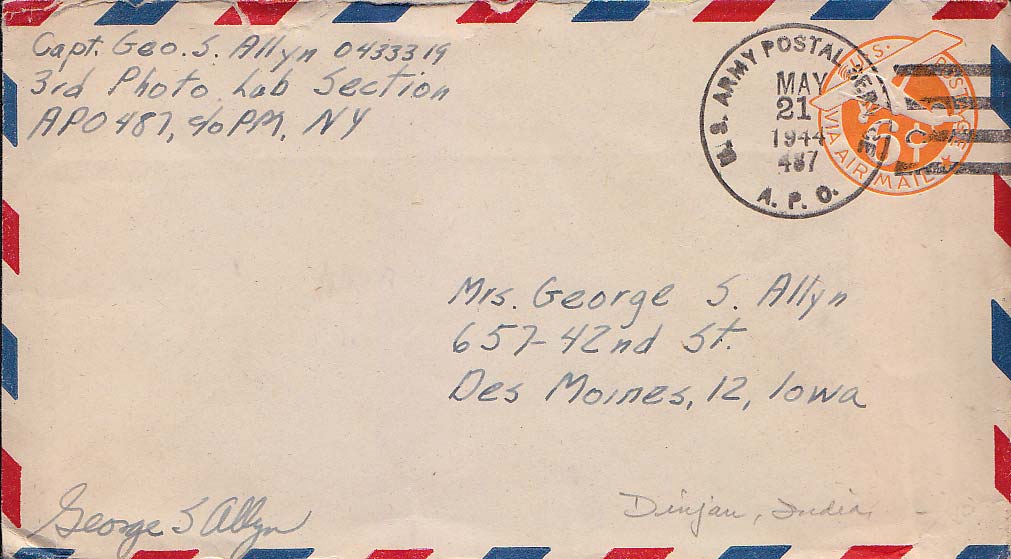 Capt. Geo. S. Allyn 0433319
3rd Photo Lab Section
APO 487, c/o PM, NY
U.S. ARMY POSTAL SERVICE
MAY
21
1944
487
A. P. O.
U.S. POSTAGE
6¢
VIA AIR MAIL
Mrs. George S. Allyn
657-42nd St.
Des Moines, 12, Iowa
George S Allyn
Dinjan, India